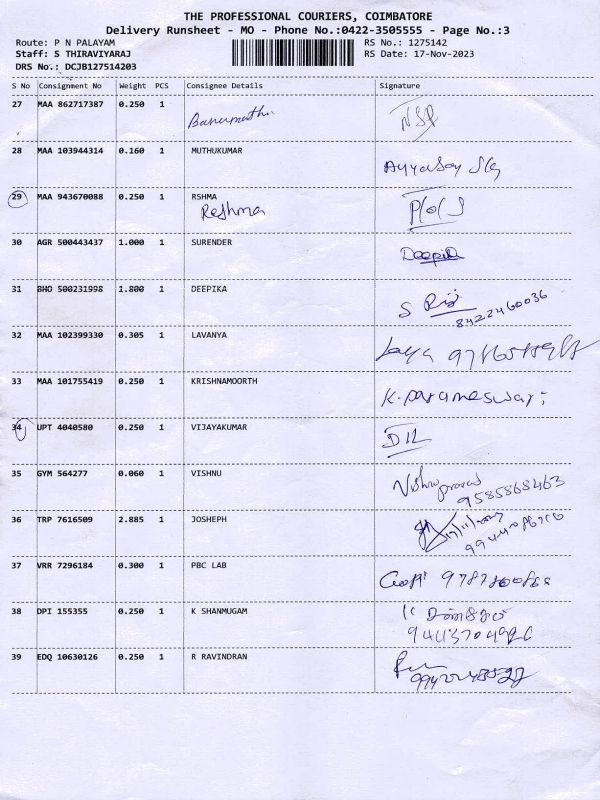 THE PROFESSIONAL COURIERS, COIMBATORE
Delivery Runsheet - MO - Phone No.:0422-3505555 - Page No.:3
Route: P N PALAYAM RS No.: 1275142
Staff: S THIRAVIYARAJ RS Date: 17-Nov-2023
DRS No.: DCJB127514203
S No Consignment No Weight PCS Consignee Details Signature
27 MAA 862717387 0.250 1
28 MAA 103944314 0.160 1 MUTHUKUMAR
29 MAA 943670088 0.250 1 RSHMA
Reshma
30 AGR 500443437 1.000 1 SURENDER Deepika
31 BHO 500231998 1.800 1 DEEPIKA
8422460036
32 MAA 102399330 0.305 1 LAVANYA
33 MAA 101755419 0.250 1 KRISHNAMOORTH K. parameswari
34 UPT 4040580 0.250 1 VIJAYAKUMAR
35 GYM 564277 0.060 1 VISHNU Vishnu prasad
9585868463
36 TRP 7616509 2.885 1 JOSHEPH
37 VRR 7296184 0.300 1 PBC LAB
38 DPI 155355 0.250 1 K SHANMUGAM
39 EDQ 10630126 0.250 1 R RAVINDRAN